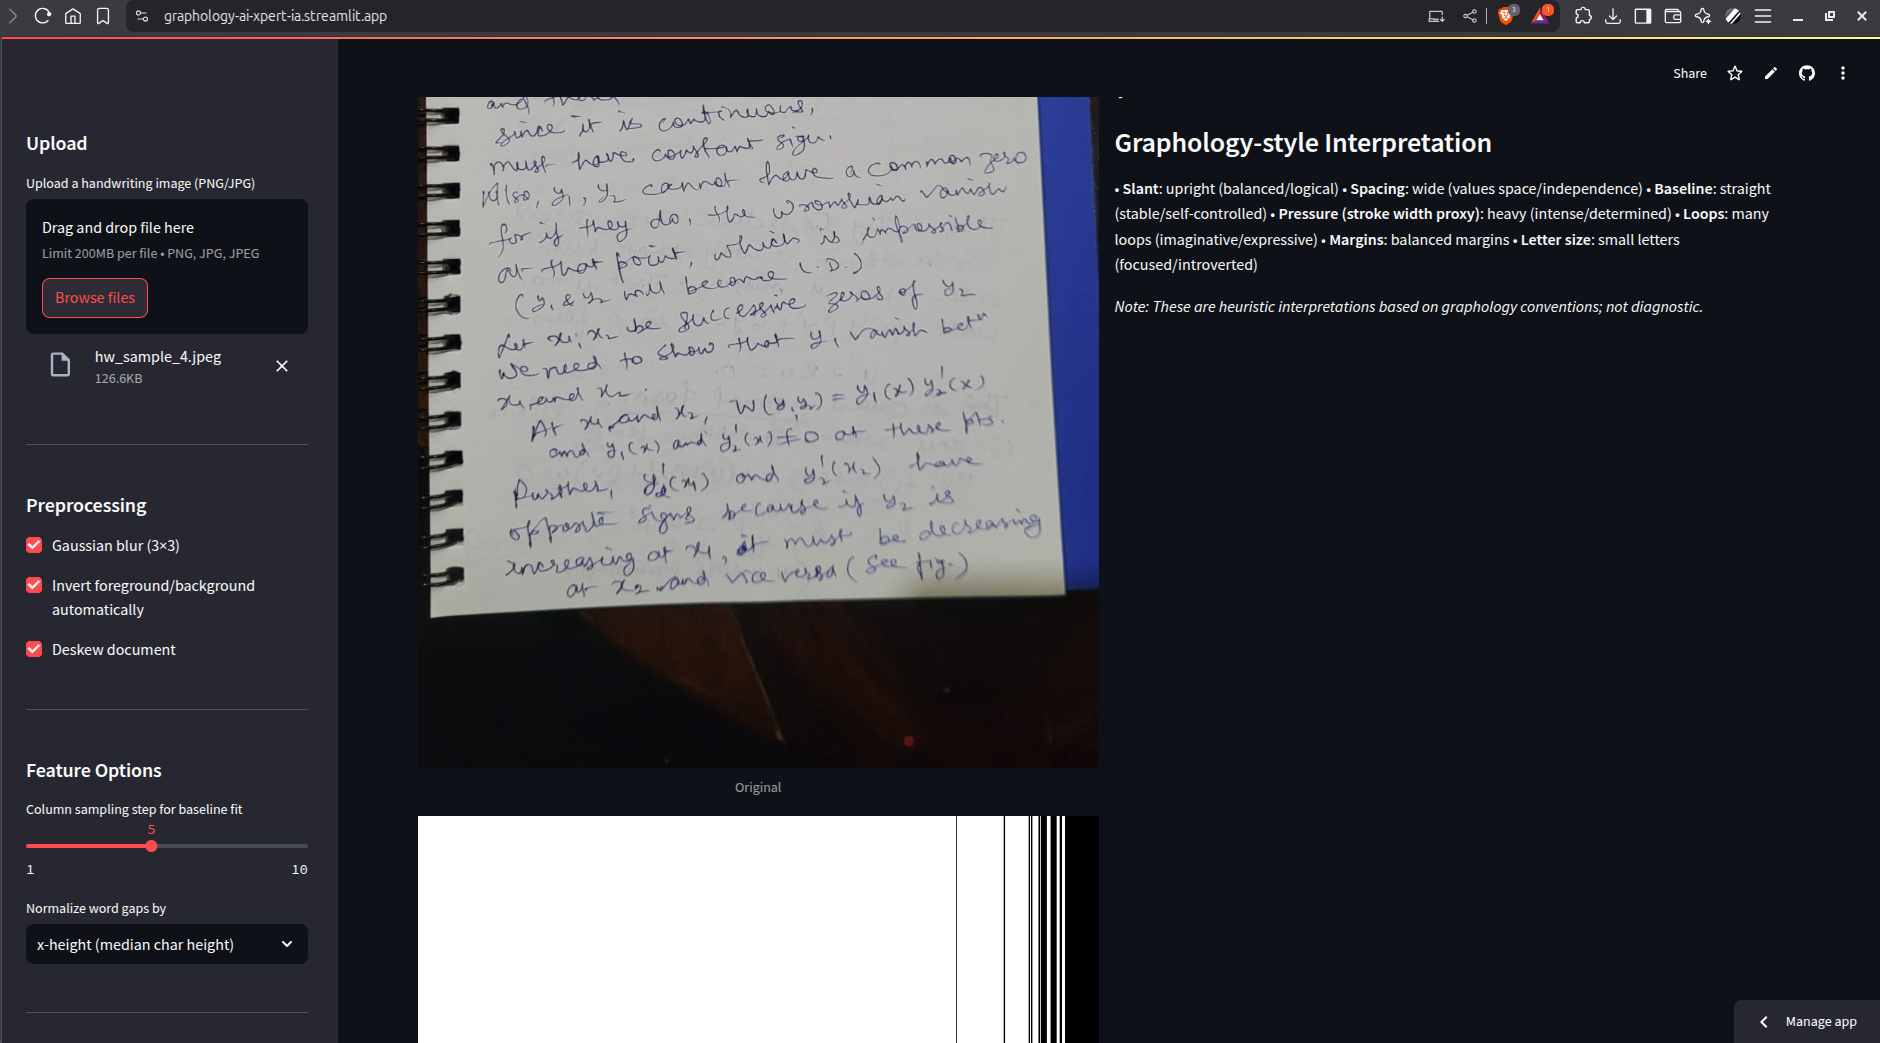 graphology-ai-xpert-ia.streamlit.app
3
1
Share
Upload
Upload a handwriting image (PNG/JPG)
Drag and drop file here
Limit 200MB per file • PNG, JPG, JPEG
Browse files
hw_sample_4.jpeg
126.6KB
Preprocessing
Gaussian blur (3×3)
Invert foreground/background
automatically
Deskew document
Feature Options
Column sampling step for baseline fit
5
1 10
Normalize word gaps by
x-height (median char height)
and
since it is continuous,
must have constant sign.
Also, y₁, y₂ cannot have a common zero
for if they do, the Wronskian vanish
at that point, which is impossible
(y₁ & y₂ will become L.D.)
Let x₁, x₂ be successive zeros of y₂
We need to show that y₁ vanish betⁿ
x₁ and x₂.
At x₁ and x₂, W(y₁,y₂) = y₁(x) y₂'(x)
and y₁(x) and y₂'(x) ≠ 0 at these pts.
Further, y₂'(x₁) and y₂'(x₂) have
opposite signs because if y₂ is
increasing at x₁, it must be decreasing
at x₂ and vice versa (See fig.)
Original
Graphology-style Interpretation
• Slant: upright (balanced/logical) • Spacing: wide (values space/independence) • Baseline: straight
(stable/self-controlled) • Pressure (stroke width proxy): heavy (intense/determined) • Loops: many
loops (imaginative/expressive) • Margins: balanced margins • Letter size: small letters
(focused/introverted)
Note: These are heuristic interpretations based on graphology conventions; not diagnostic.
Manage app